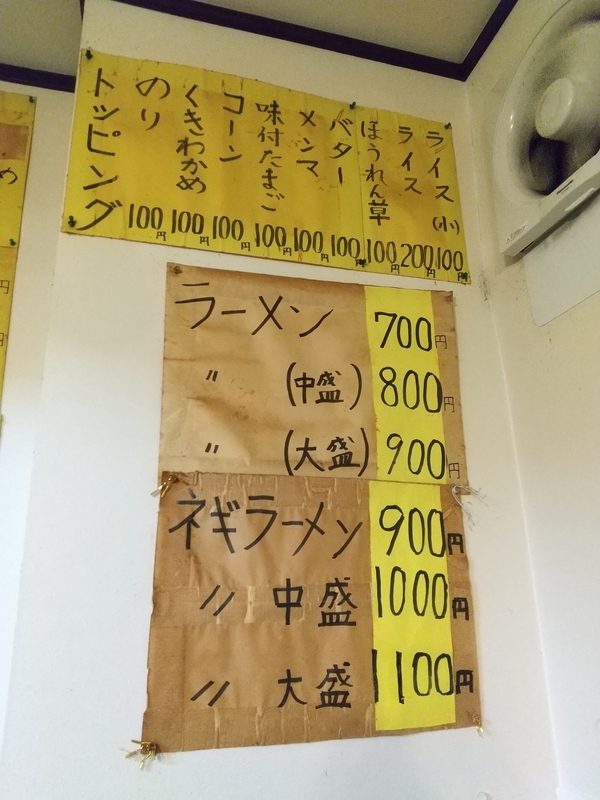 トッピング
のり 100円
くきわかめ 100円
コーン 100円
味付たまご 100円
メンマ 100円
バター 100円
ほうれん草 100円
ライス 200円
ライス(小) 100円
ラーメン 700円
〃 (中盛) 800円
〃 (大盛) 900円
ネギラーメン 900円
〃 中盛 1000円
〃 大盛 1100円
め
円
円